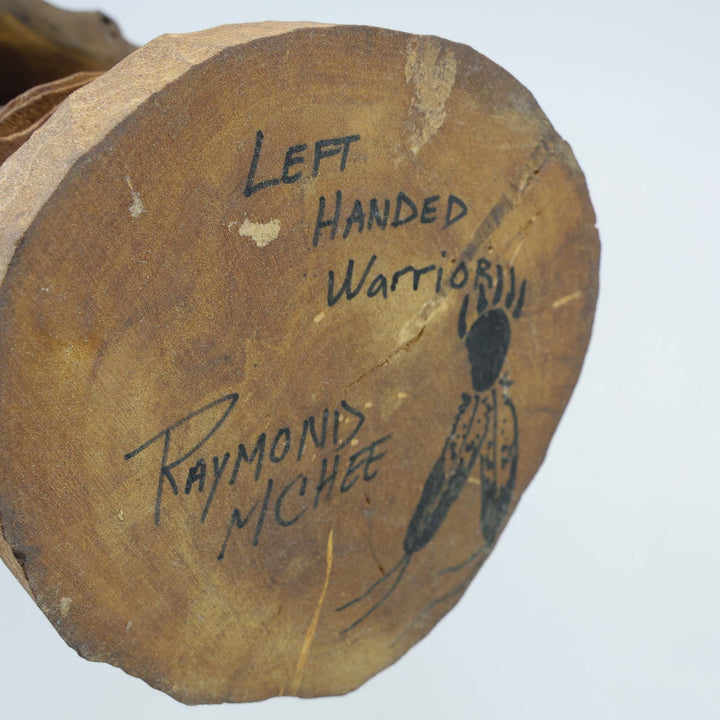 Left
Handed
Warrior
Raymond
McHee